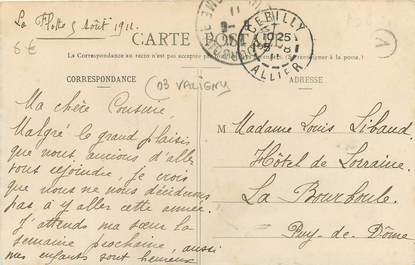 La Flotte 5 Août 1911.
6€
CARTE POSTALE
CERILLY
ALLIER
1
La Correspondance au recto n'est pas acceptée par tous les pays étrangers
CORRESPONDANCE
ADRESSE
03 VALIGNY
Ma chère Cousine,
Malgré le grand plaisir
que nous aurions d'aller
vous rejoindre, je crois
que nous ne nous déciderons
pas à y aller cette année.
J'attends ma sœur la
semaine prochaine, aussi
mes enfants sont heureux
M
Madame Louis Libaud
Hôtel de Lorraine
La Bourboule
Puy-de-Dôme